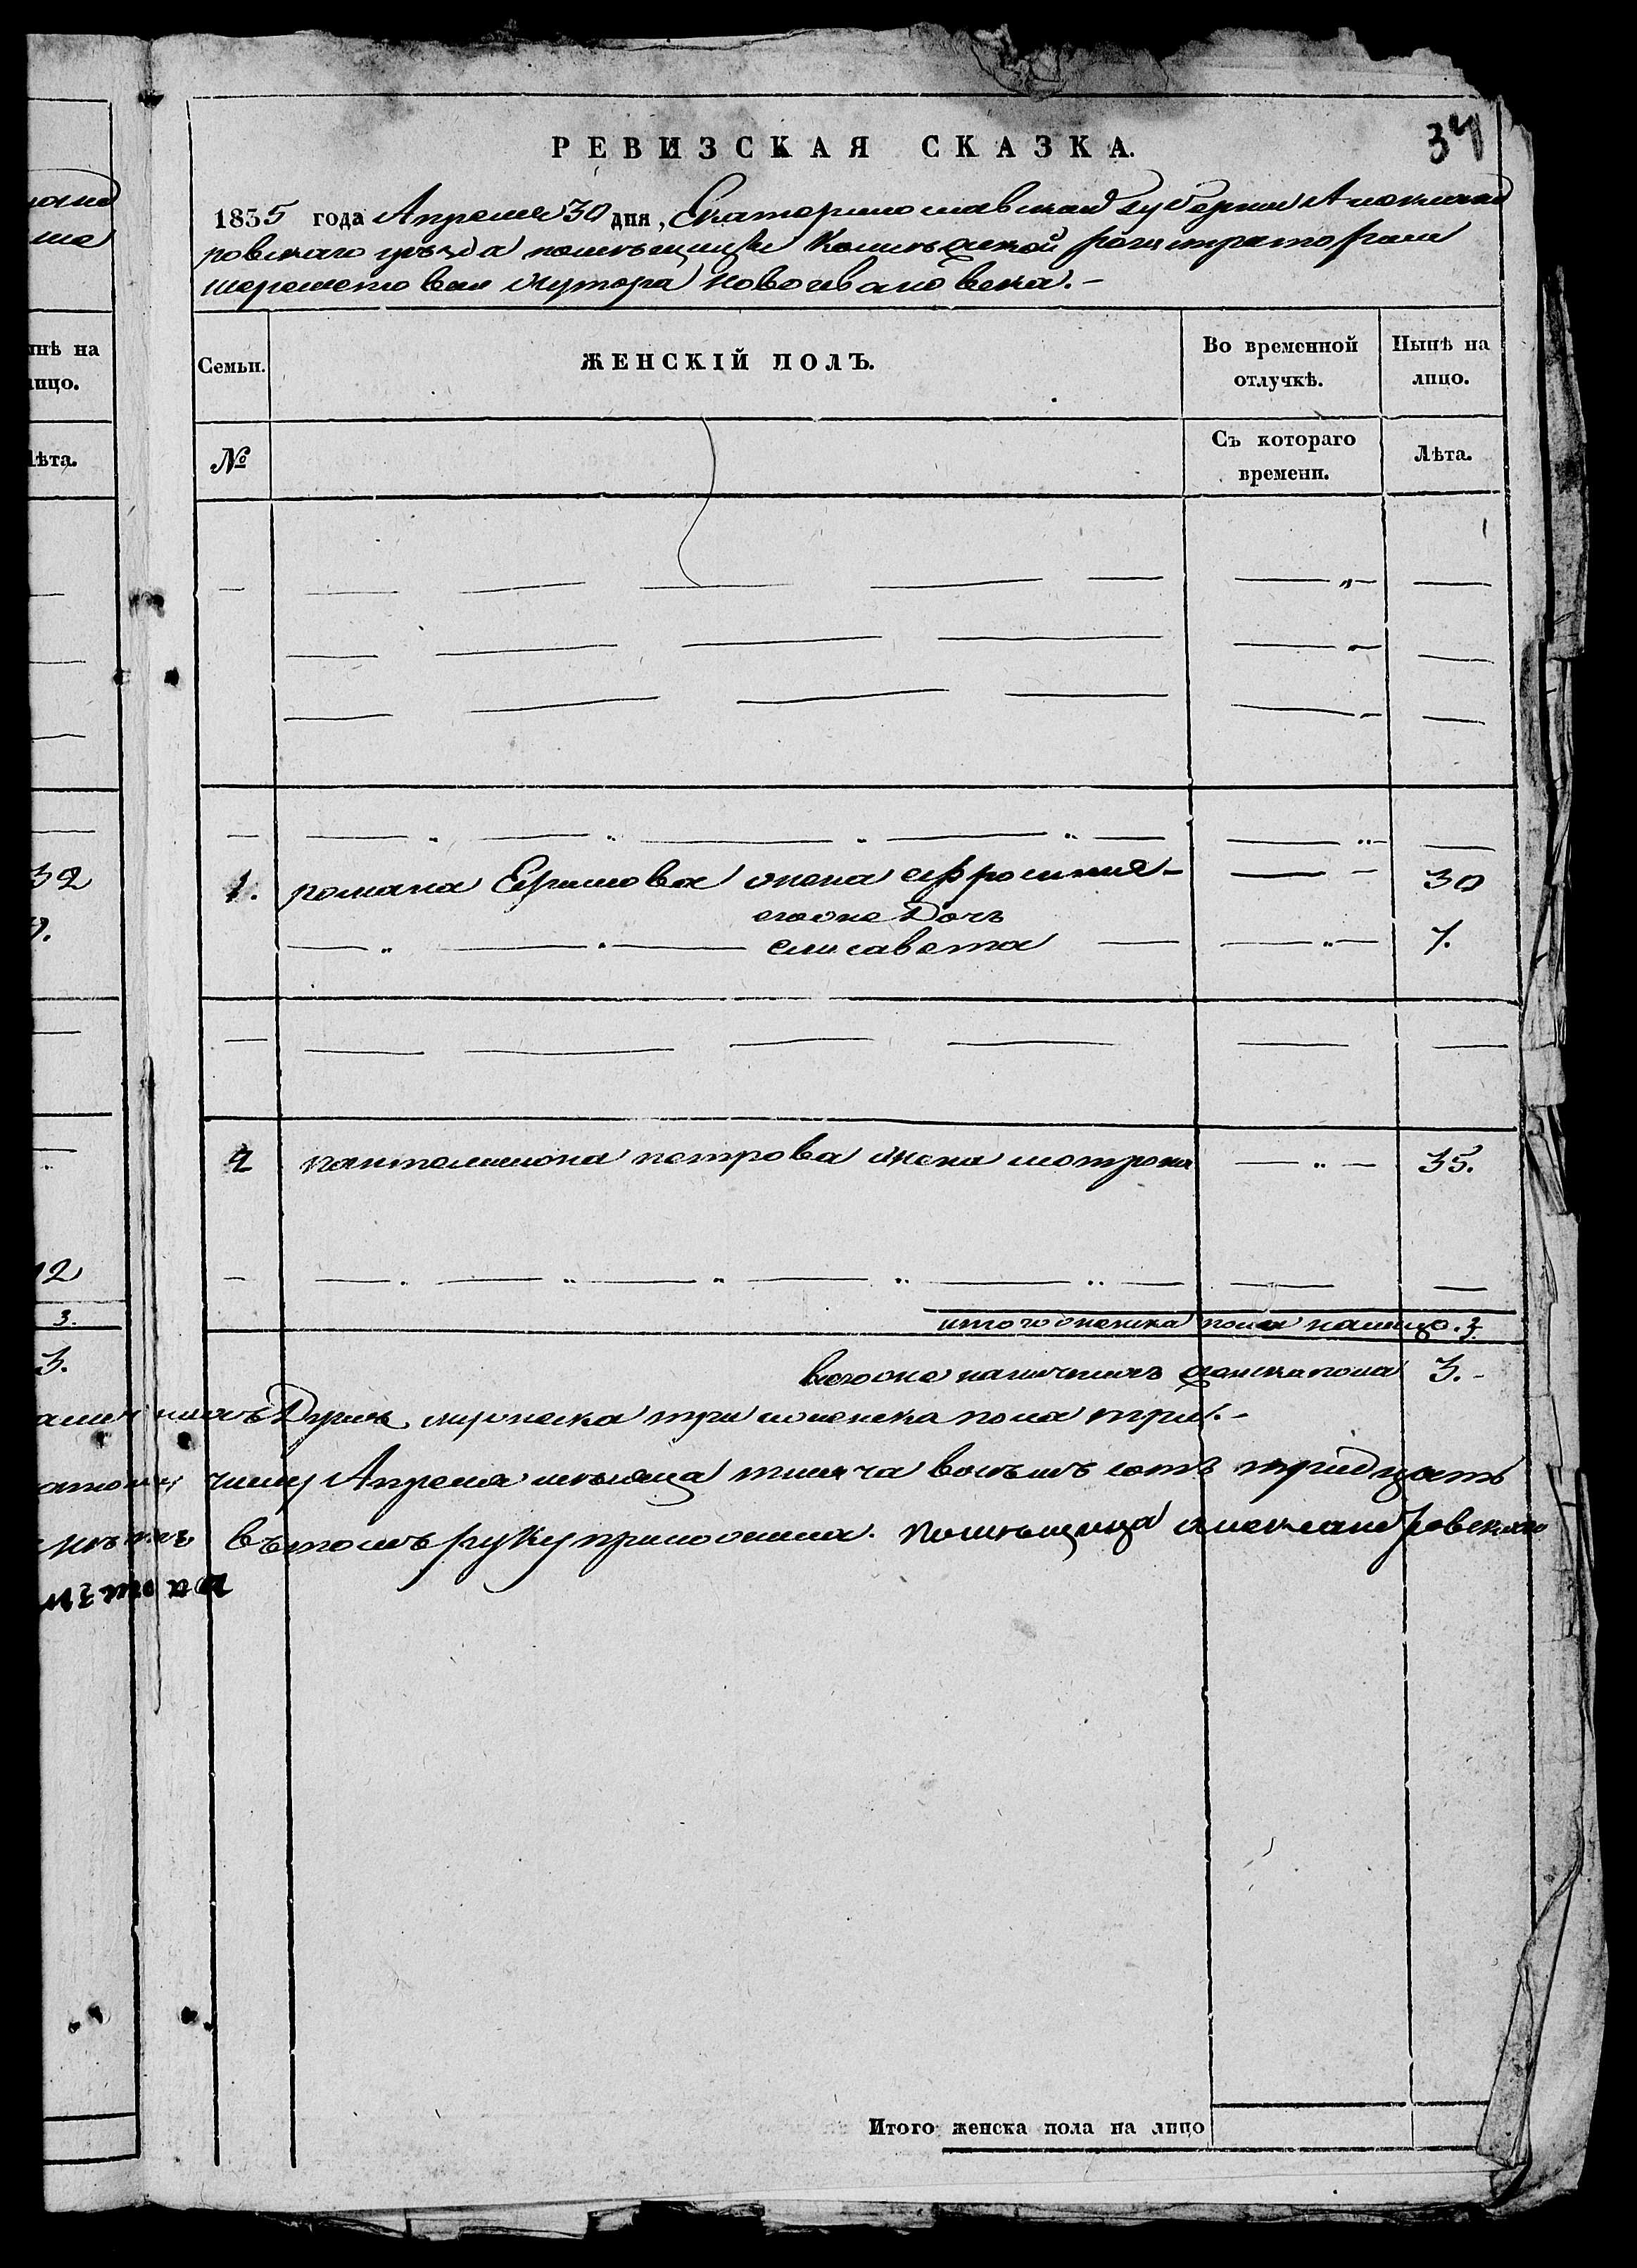 РЕВИЗСКАЯ СКАЗКА.
1835 года Апреля 30 дня, Екатеринославской губернии Александ
ровскаго уѣзда помѣщицы
хутора Новоивановка.-
нѣ на
лицо.
Лѣта.
Семьи.
ЖЕНСКІЙ ПОЛЪ.
Во временной
отлучкѣ.
Нынѣ на
лицо.
№
Съ котораго
времени.
Лѣта.
32
1. романа Ефимова жена ефросиния - 30
егоже Дочь
елисавета 7.
2 пантелимона петрова жена мотрона 35.
12
3.
итого женска пола налицо. 3.
3.
всегоже наличныхъ женска пола 3.-
Душъ мужеска три женска пола три.-
Апреля мѣсяца тисяча восѣмъ сотъ тридцать
вътомъ руку приложила. Помѣщица александровскаго
Итого женска пола на лицо